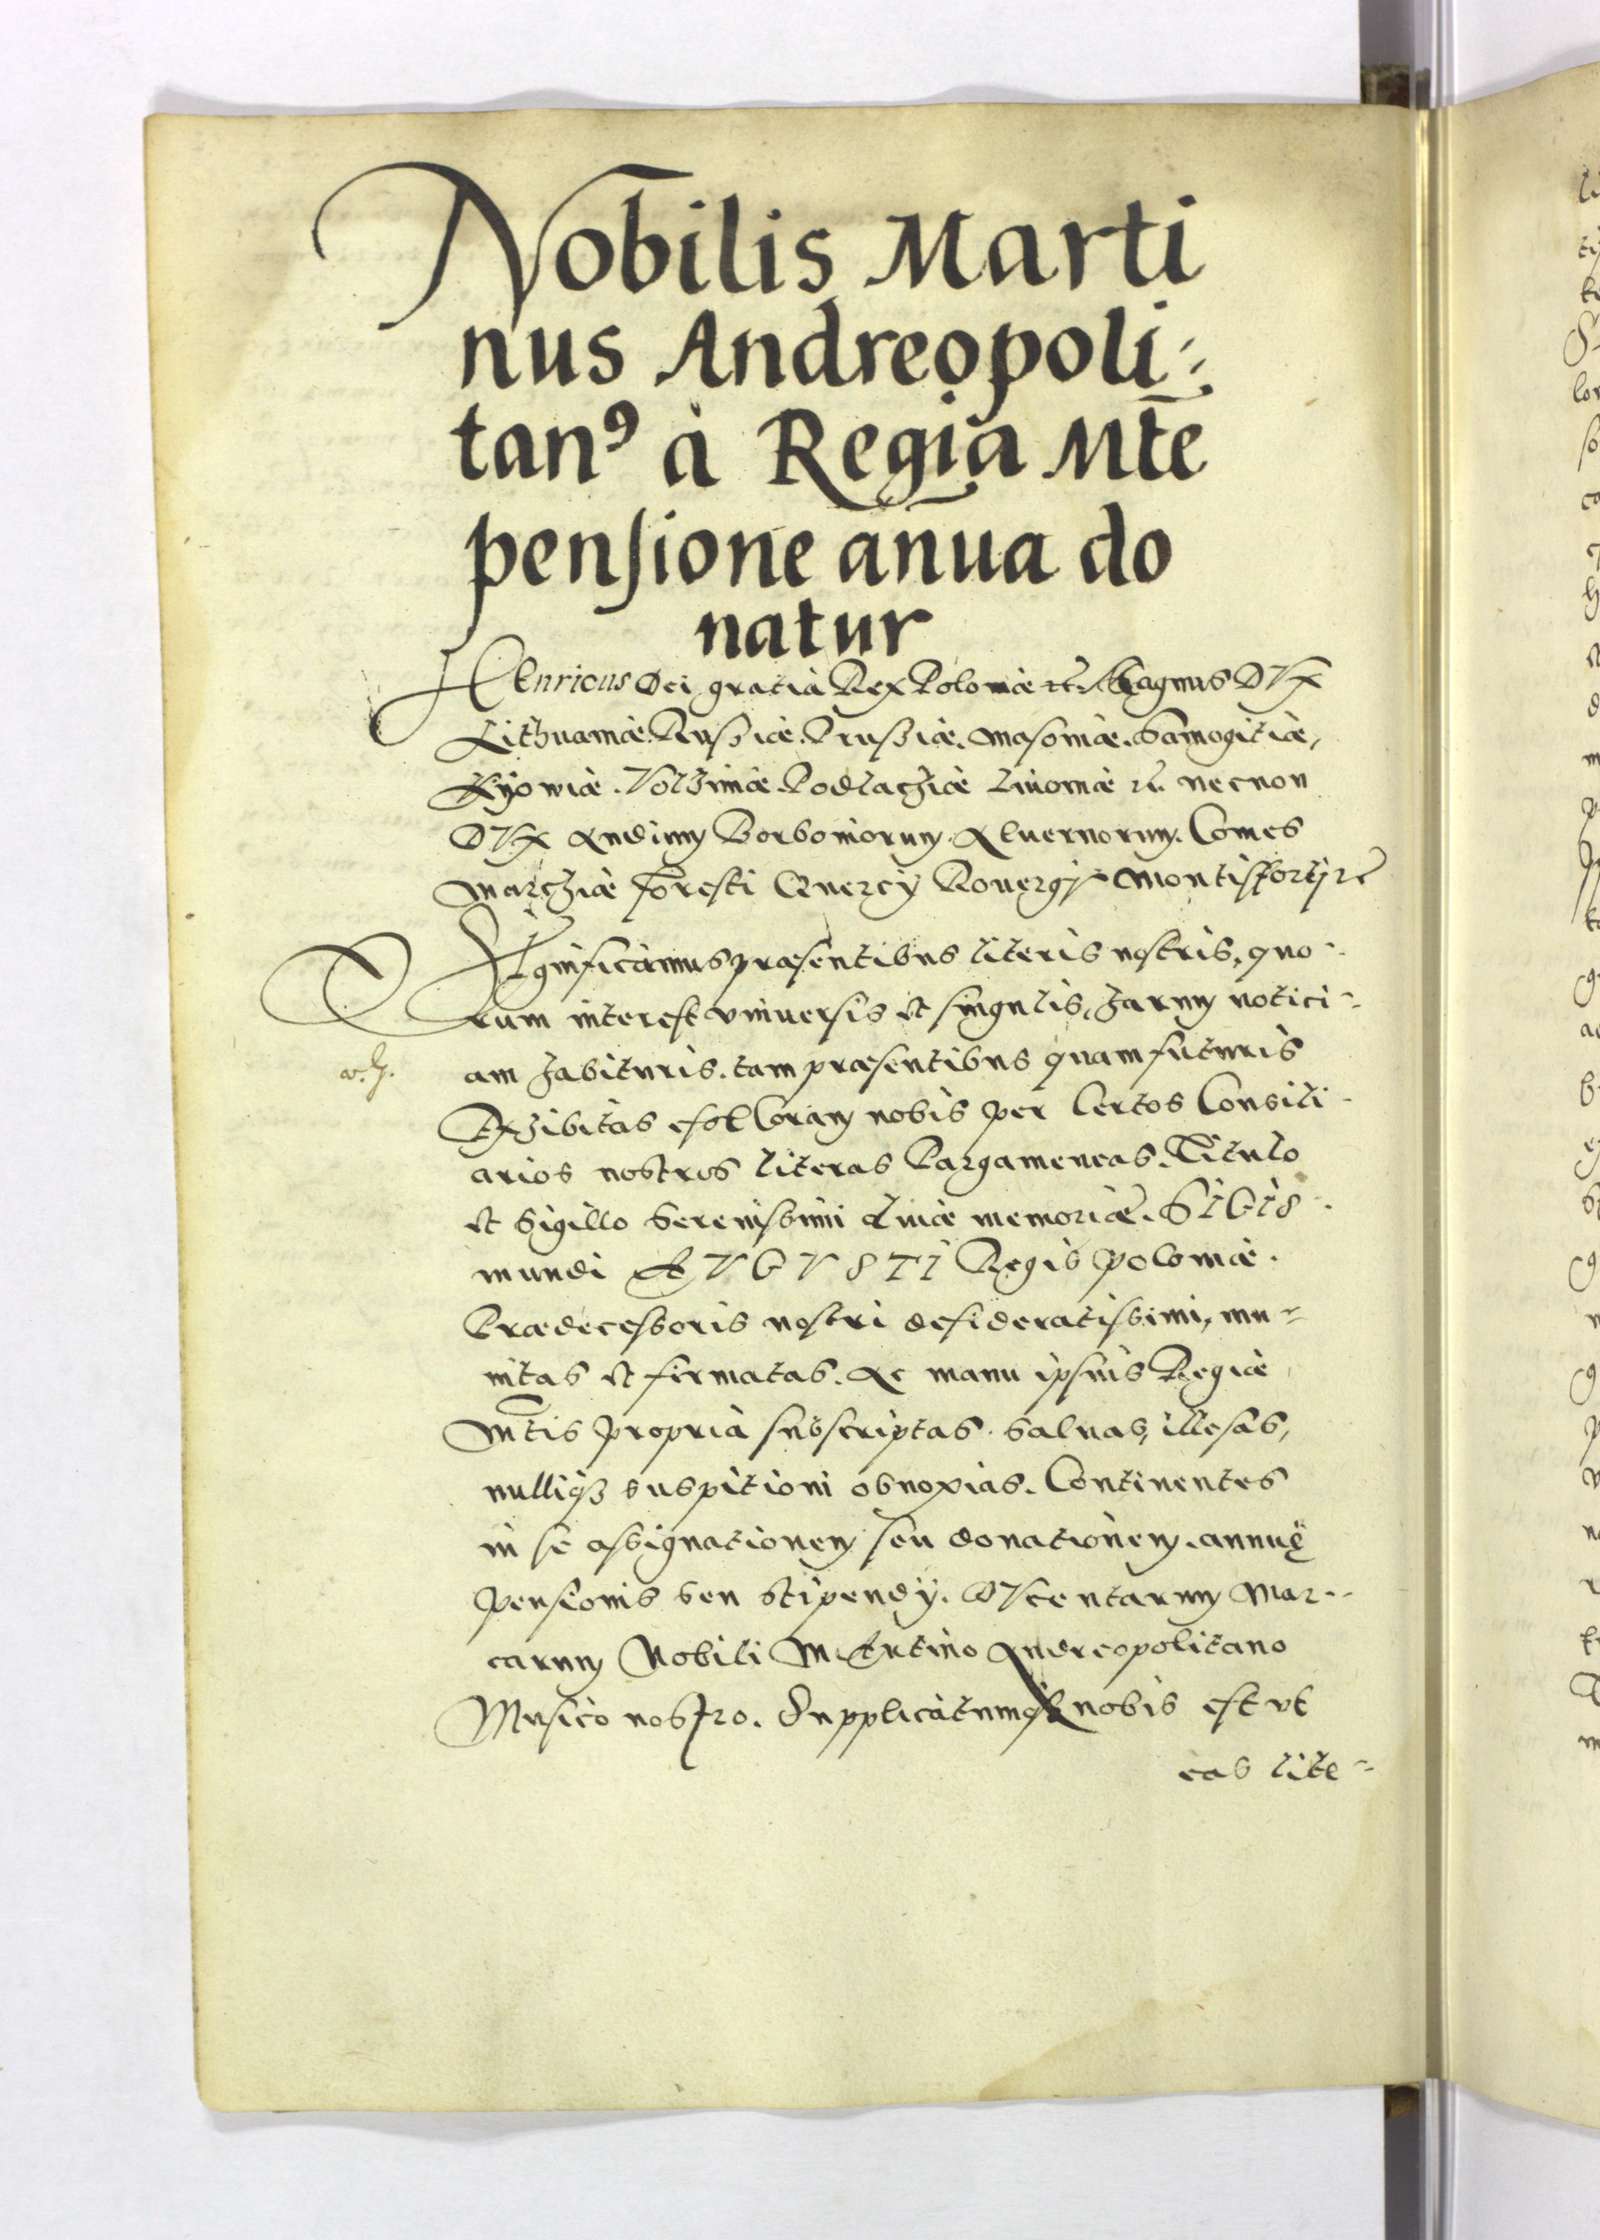 Nobilis Marti
nus Andreopoli-
tanꝰ à Regia Mt̄e
pensione an̄ua do
natur
HEnricus Dei gratia Rex Poloniæ etc. Magnus DVx
Lithuaniæ. Russiæ. Prussiæ. Masoviæ. Samogitiæ,
Kyowiæ. Volhiniæ. Podlachiæ Livoniæ etc. necnon
DVx Andium Borboniorum. Aluernorum. Comes
Marchiæ Foresti Quercÿ Rouergÿ Montisfortÿ etc
SIgnificamus præsentibus literis nostris, quo-
rum interest vniuersis et singulis, harum notici-
am habituris. tam præsentibus quam futuris
Exhibitas esse Coram nobis per Certos Consili-
arios nostros literas Pargameneas. Titulo
et Sigillo Serenissimi diuæ memoriæ. SIGIS-
mundi AVGVSTI Regis Poloniæ.
Prædecessoris nostri desideratissimi, mu-
nitas et firmatas. Ac manu ipsius Regiæ
Mt̄is propria subscriptas. Saluas, illesas,
nulliqꝫ suspitioni obnoxias. Continentes
in se assignationem seu donationem. annuę
Pensionis seu Stipendÿ. DVcentarum Mar-
carum Nobili MArtino Andreopolitano
Musico nostro. Supplicatumqꝫ nobis est vt
eas lite-